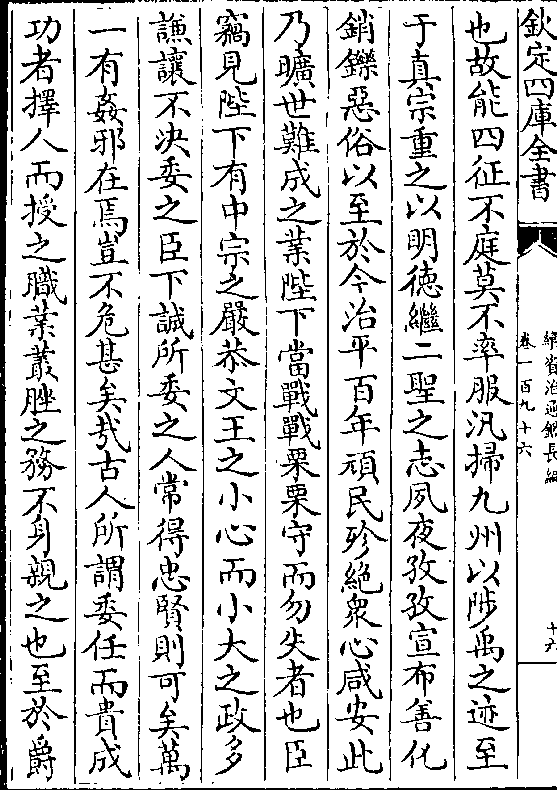 欽定四庫全書
續資治通鑑長編
卷一百九十六
十六
也故能四征不庭莫不率服汎掃九州以陟禹之迹至
于真宗重之以明徳繼二聖之志夙夜孜孜宣布善化
銷鑠惡俗以至於今治平百年頑民殄絶衆心咸安此
乃曠世難成之業陛下當戰戰栗栗守而勿失者也臣
竊見陛下有中宗之嚴恭文王之小心而小大之政多
謙讓不決委之臣下誠所委之人常得忠賢則可矣萬
一有姦邪在焉豈不危甚矣哉古人所謂委任而責成
功者擇人而授之職業叢脞之務不身親之也至於爵